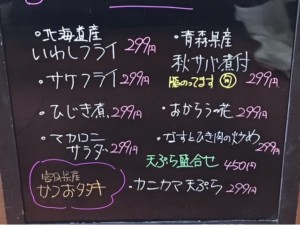 ・北海道産
いわしフライ 299円
・サケフライ 299円
・ひじき煮 299円
・マカロニ
サラダ 299円
宮城県産
かつおタタキ
・青森県産
秋サバ煮付
脂のってます 旬 299円
・おから 299円
・なすとひき肉の炒め
299円
天ぷら盛合せ 450円
・カニカマ天ぷら 299円